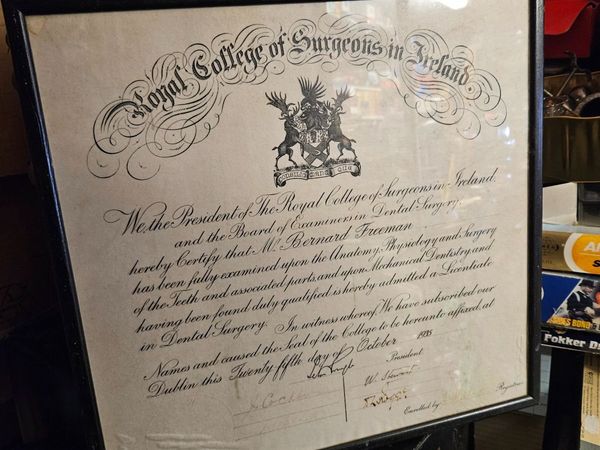 Royal College of Surgeons in Ireland
We, the President of The Royal College of Surgeons in Ireland,
and the Board of Examiners in Dental Surgery,
hereby Certify that Mr Bernard Freeman
has been fully examined upon the Anatomy, Physiology and Surgery
of the Teeth and associated parts, and upon Mechanical Dentistry, and
having been found duly qualified is hereby admitted a Licentiate
in Dental Surgery. In witness whereof, We have subscribed our
Names and caused the Seal of the College to be hereunto affixed, at
Dublin this Twenty fifth day of October
President
Enrolled by
Registrar
JAMES BOND
Fokker D